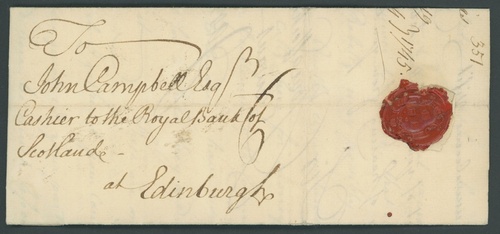 To
John Campbell Esqr
Cashier to the Royal Bank of
Scotland
at Edinburgh
6
1745.
351